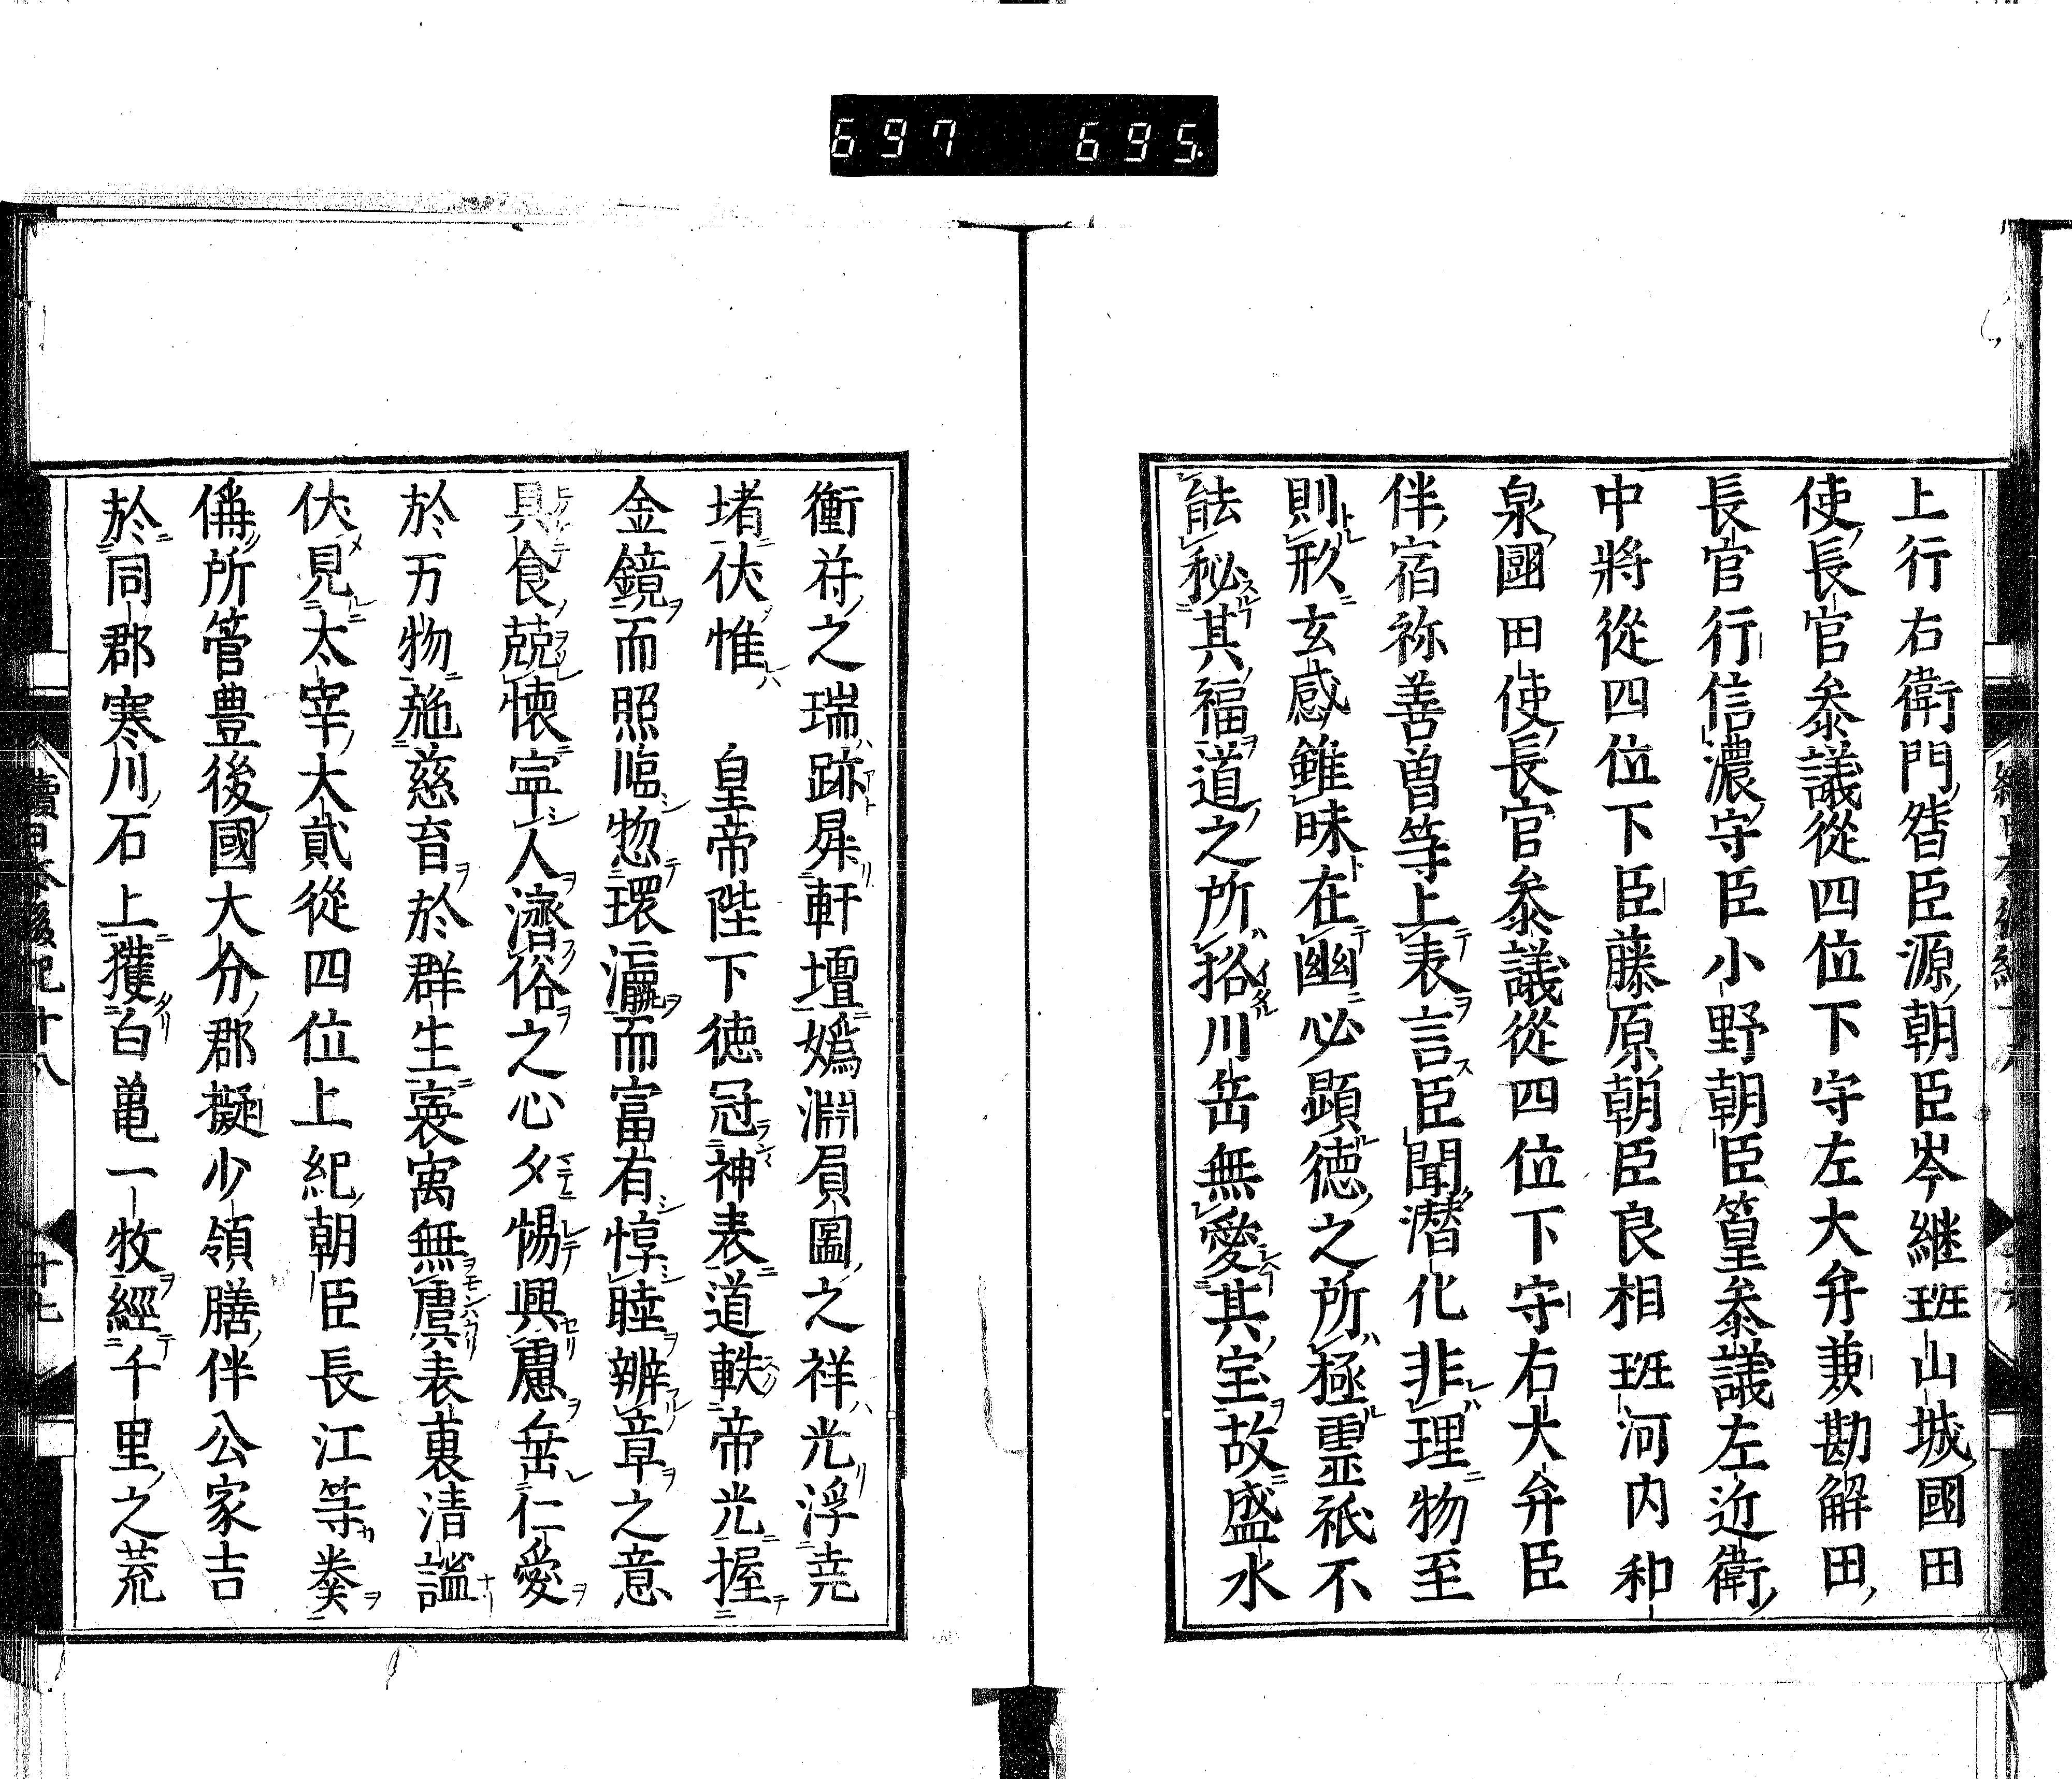 697 695
上行右衛門督臣源朝臣岑継班山城國田
使長官叅議從四位下守左大弁兼勘解田
長官行信濃守臣小野朝臣篁叅議左近衛
中將從四位下臣藤原朝臣良相班河内和
泉國田使長官叅議從四位下守右大弁臣
伴宿祢善曽等上表言臣聞潜化非理物至
則形玄感雖昧在幽必顕徳之所極霊祇不
能秘其福道之所格川岳無愛其宝故盛水
衝苻之瑞跡昇軒壇嬀淵負圖之祥光浮尭
堵伏惟 皇帝陛下徳冠神表道軼帝光握
金鏡而照臨惣環瀛而富有惇睦辨章之意
具食兢懐寧人濟俗之心夕惕興慮岳仁愛
於万物施慈育於群生寰寓無虞表裏清謐
伏見太宰大貳從四位上紀朝臣長江等奏
偁所管豊後國大分郡擬少領膳伴公家吉
於同郡寒川石上獲白亀一牧經千里之荒
續日本後紀十八 十七